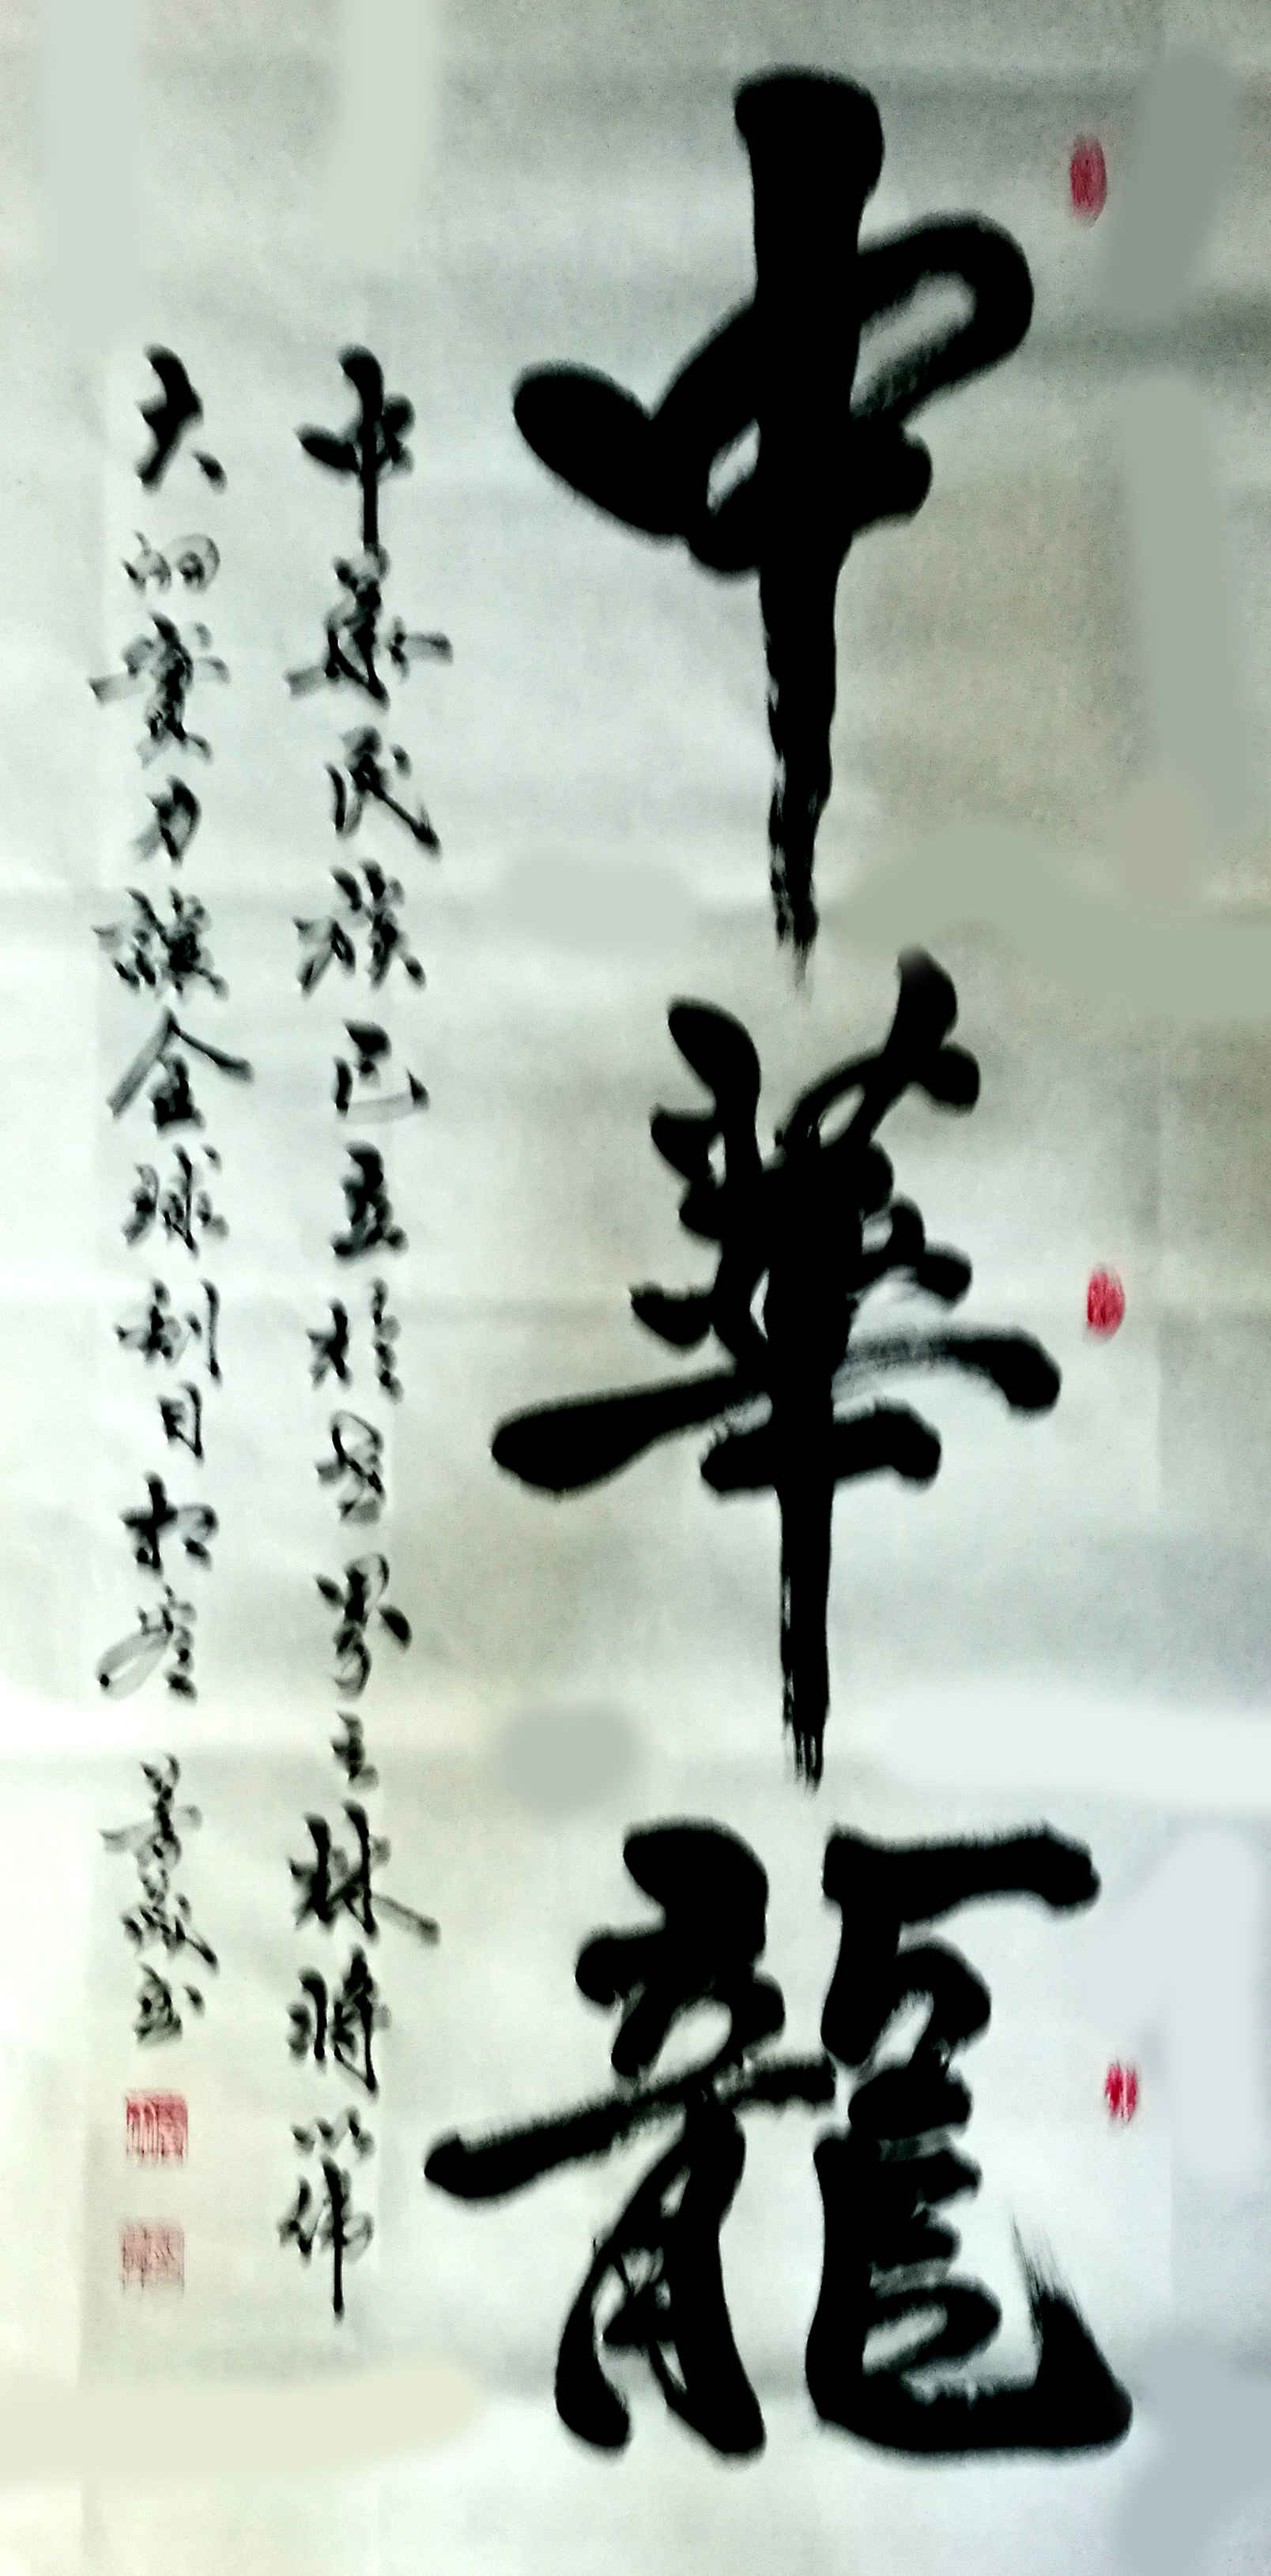 中華龍
中華民族已立於世界之林將以偉
大的實力讓全球刮目相看
書